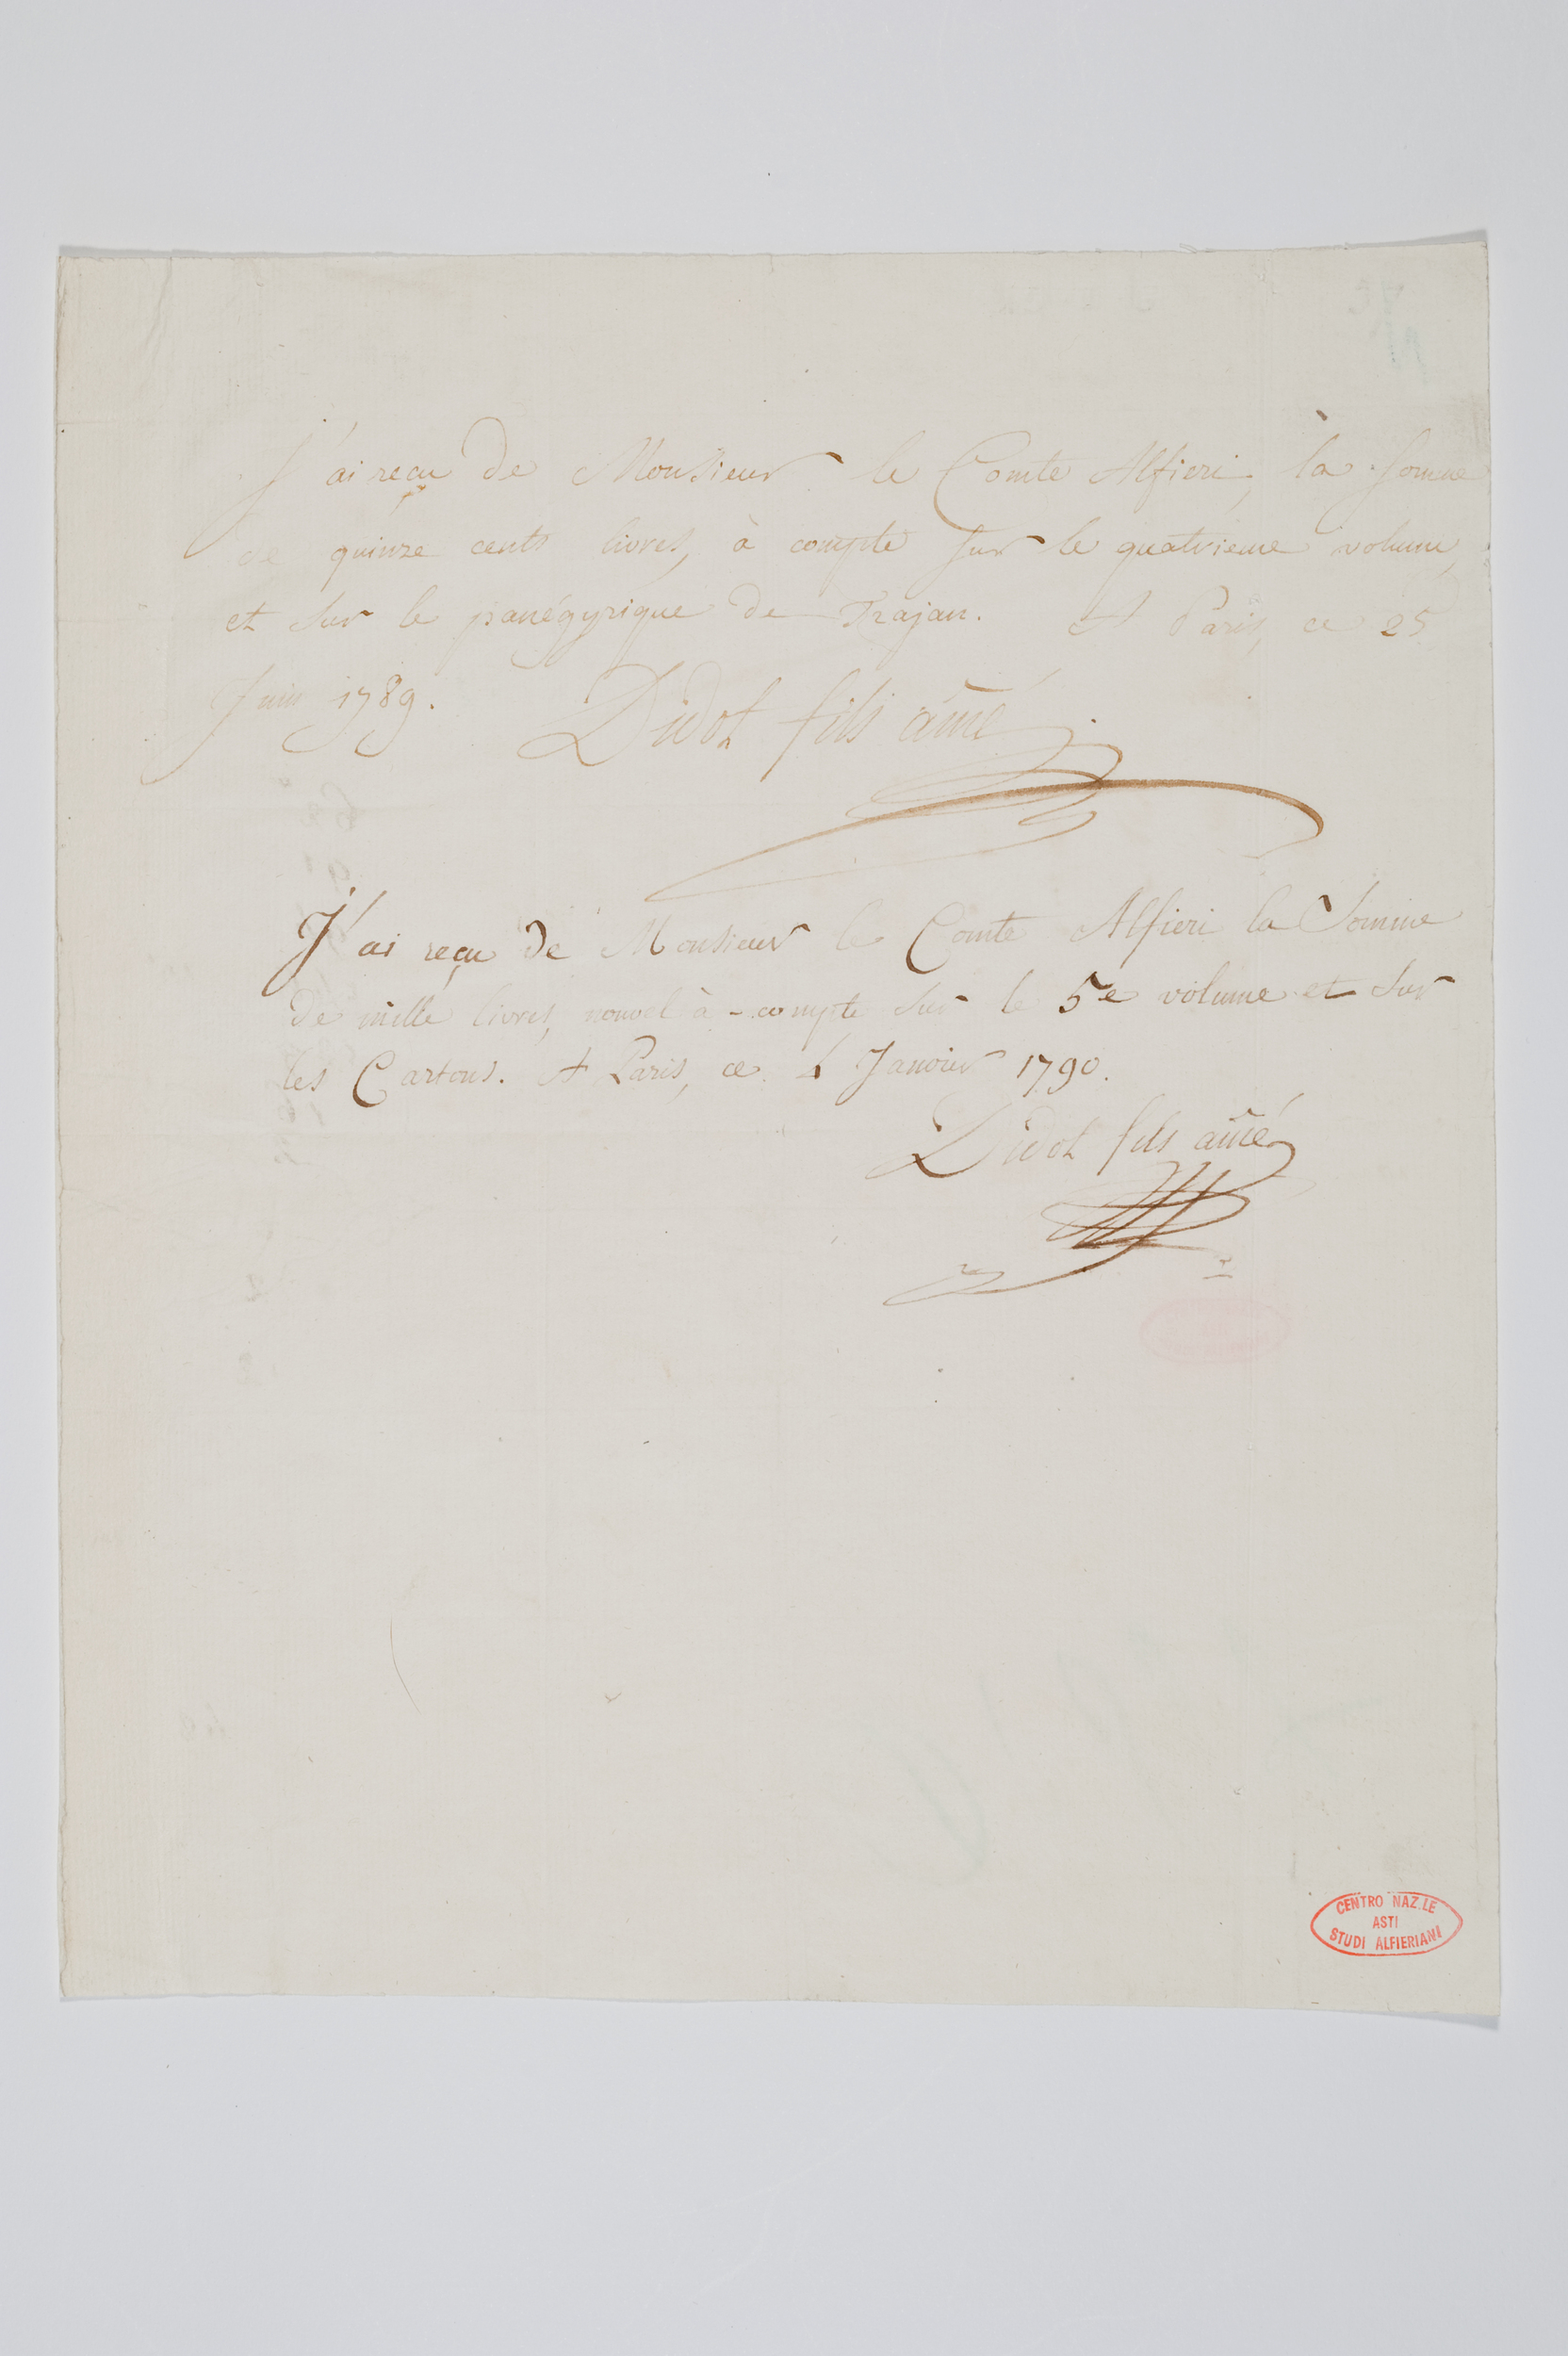 J'ai reçu de Monsieur le Comte Alfieri, la somme
de quinze cents livres, à compte sur le quatrieme volume,
et sur le panégyrique de Trajan. A Paris, ce 25
Juin 1789. Didot fils aîné
J'ai reçu de Monsieur le Comte Alfieri la Somme
de mille livres, nouvel à-compte sur le 5e volume et sur
les Cartons. A Paris, ce Janvier 1790.
Didot fils aîné
CENTRO NAZ.LE
ASTI
STUDI ALFIERIANI